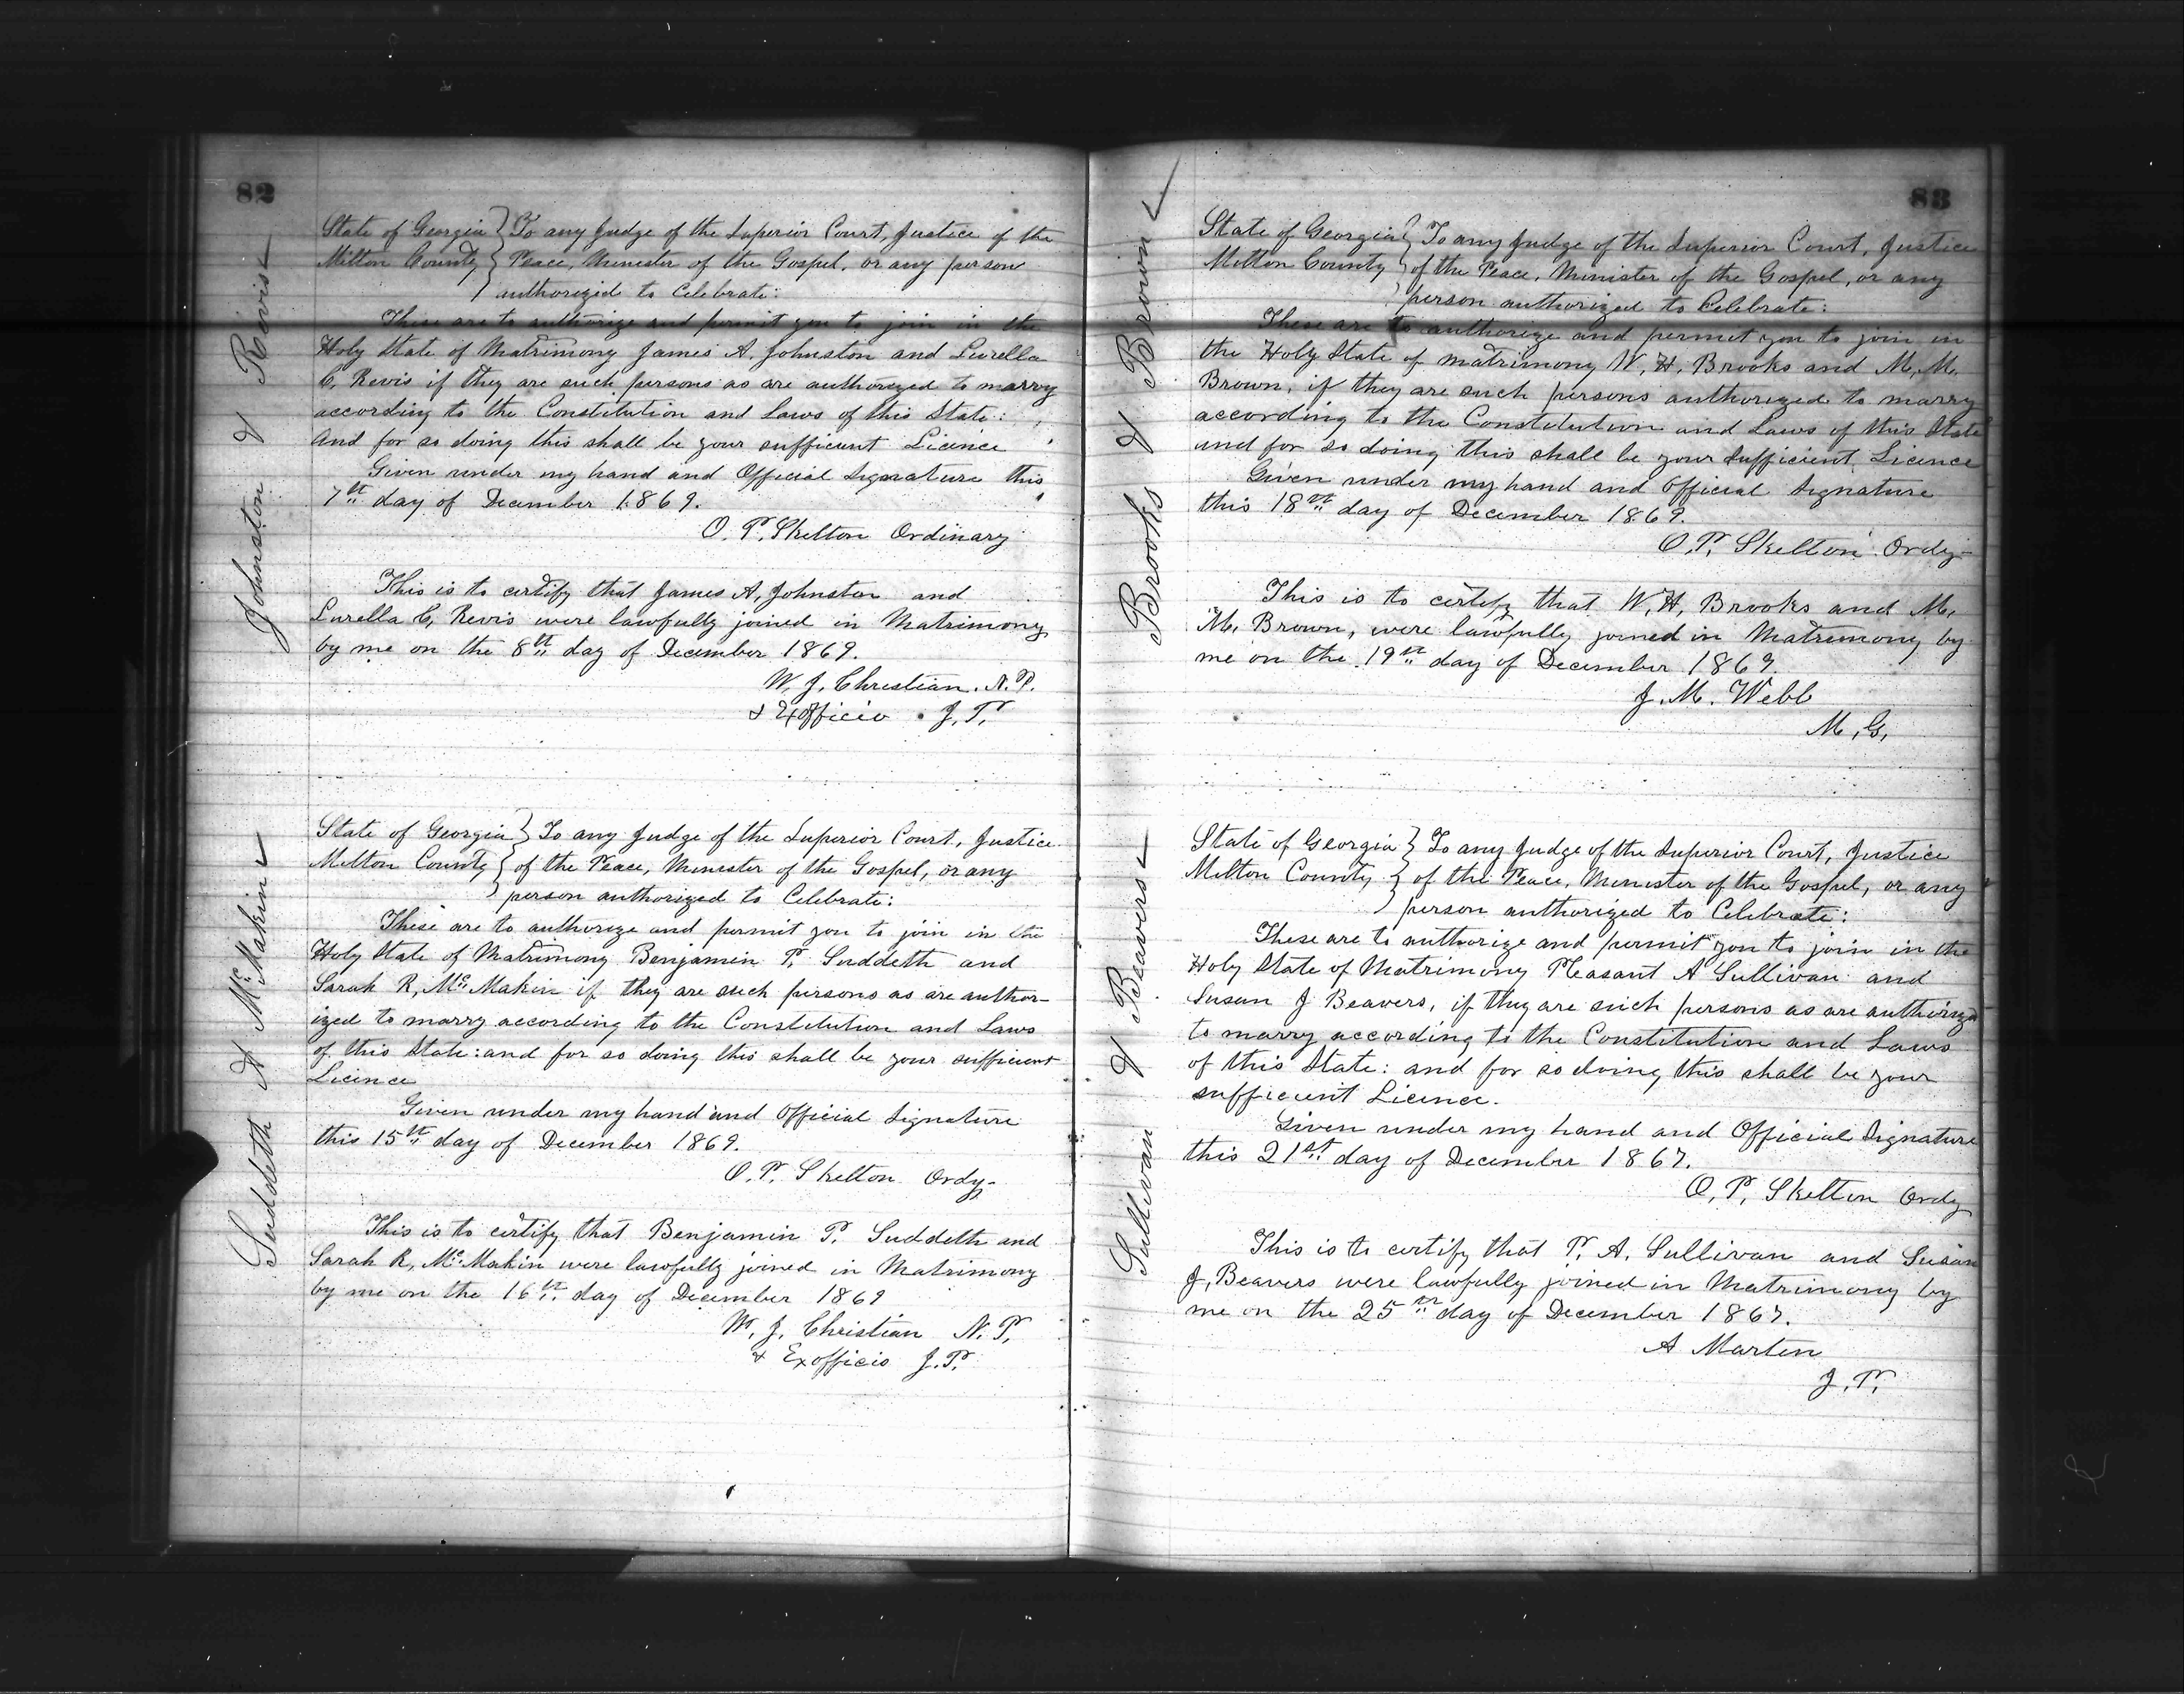 82
Johnston & Revis
State of Georgia } To any Judge of the Superior Court, Justice of the
Milton County } Peace, Minister of the Gospel, or any person
authorized to Celebrate:
These are to authorize and permit you to join in the
Holy State of Matrimony James A. Johnston and Lurella
C, Revis if they are such persons as are authorized to marry
according to the Constitution and Laws of this State:
And for so doing this shall be your sufficient Licence
Given under my hand and Official Signature this
7th day of December 1869.
O. P. Skelton Ordinary
This is to certify that James A, Johnston and
Lurella C, Revis were lawfully joined in Matrimony
by me on the 8th day of December 1869.
W. J. Christian. N. P.
& Exofficio J. P.
Suddeth & McMakin
State of Georgia } To any Judge of the Superior Court, Justice
Milton County } of the Peace, Minister of the Gospel, or any
person authorized to Celebrate:
These are to authorize and permit you to join in the
Holy State of Matrimony Benjamin P. Suddeth and
Sarah R, McMakin if they are such persons as are author-
ized to marry according to the Constitution and Laws
of this State: and for so doing this shall be your sufficient
Licence
Given under my hand and Official Signature
this 15th day of December 1869.
O. P. Skelton Ordy-
This is to certify that Benjamin P. Suddeth and
Sarah R, McMakin were lawfully joined in Matrimony
by me on the 16th day of December 1869
W. J. Christian N. P.
& Exofficio J. P.
83
Brooks & Brown
State of Georgia } To any Judge of the Superior Court, Justice
Milton County } of the Peace, Minister of the Gospel, or any
person authorized to Celebrate:
These are to authorize and permit you to join in
the Holy State of matrimony W. H. Brooks and M, M,
Brown, if they are such persons authorized to marry
according to the Constitution and Laws of this State
and for so doing this shall be your sufficient Licence
Given under my hand and official Signature
this 18th day of December 1869.
O. P. Skelton Ordy-
This is to certify that W. H, Brooks and M,
M, Brown, were lawfully joined in Matrimony by
me on the 19th day of December 1869.
J. M. Webb
M, G,
Sullivan & Beavers
State of Georgia } To any Judge of the Superior Court, Justice
Milton County } of the Peace, Minister of the Gospel, or any
person authorized to Celebrate:
These are to authorize and permit you to join in the
Holy State of Matrimony Pleasant A Sullivan and
Susan J Beavers, if they are such persons as are authorized
to marry according to the Constitution and Laws
of this State: and for so doing this shall be your
sufficient Licence.
Given under my hand and Official Signature
this 21st day of December 1867.
O, P, Skelton Ordy
This is to certify that P. A. Sullivan and Susan
J, Beavers were lawfully joined in Matrimony by
me on the 25th day of December 1867.
A Martin
J. P.